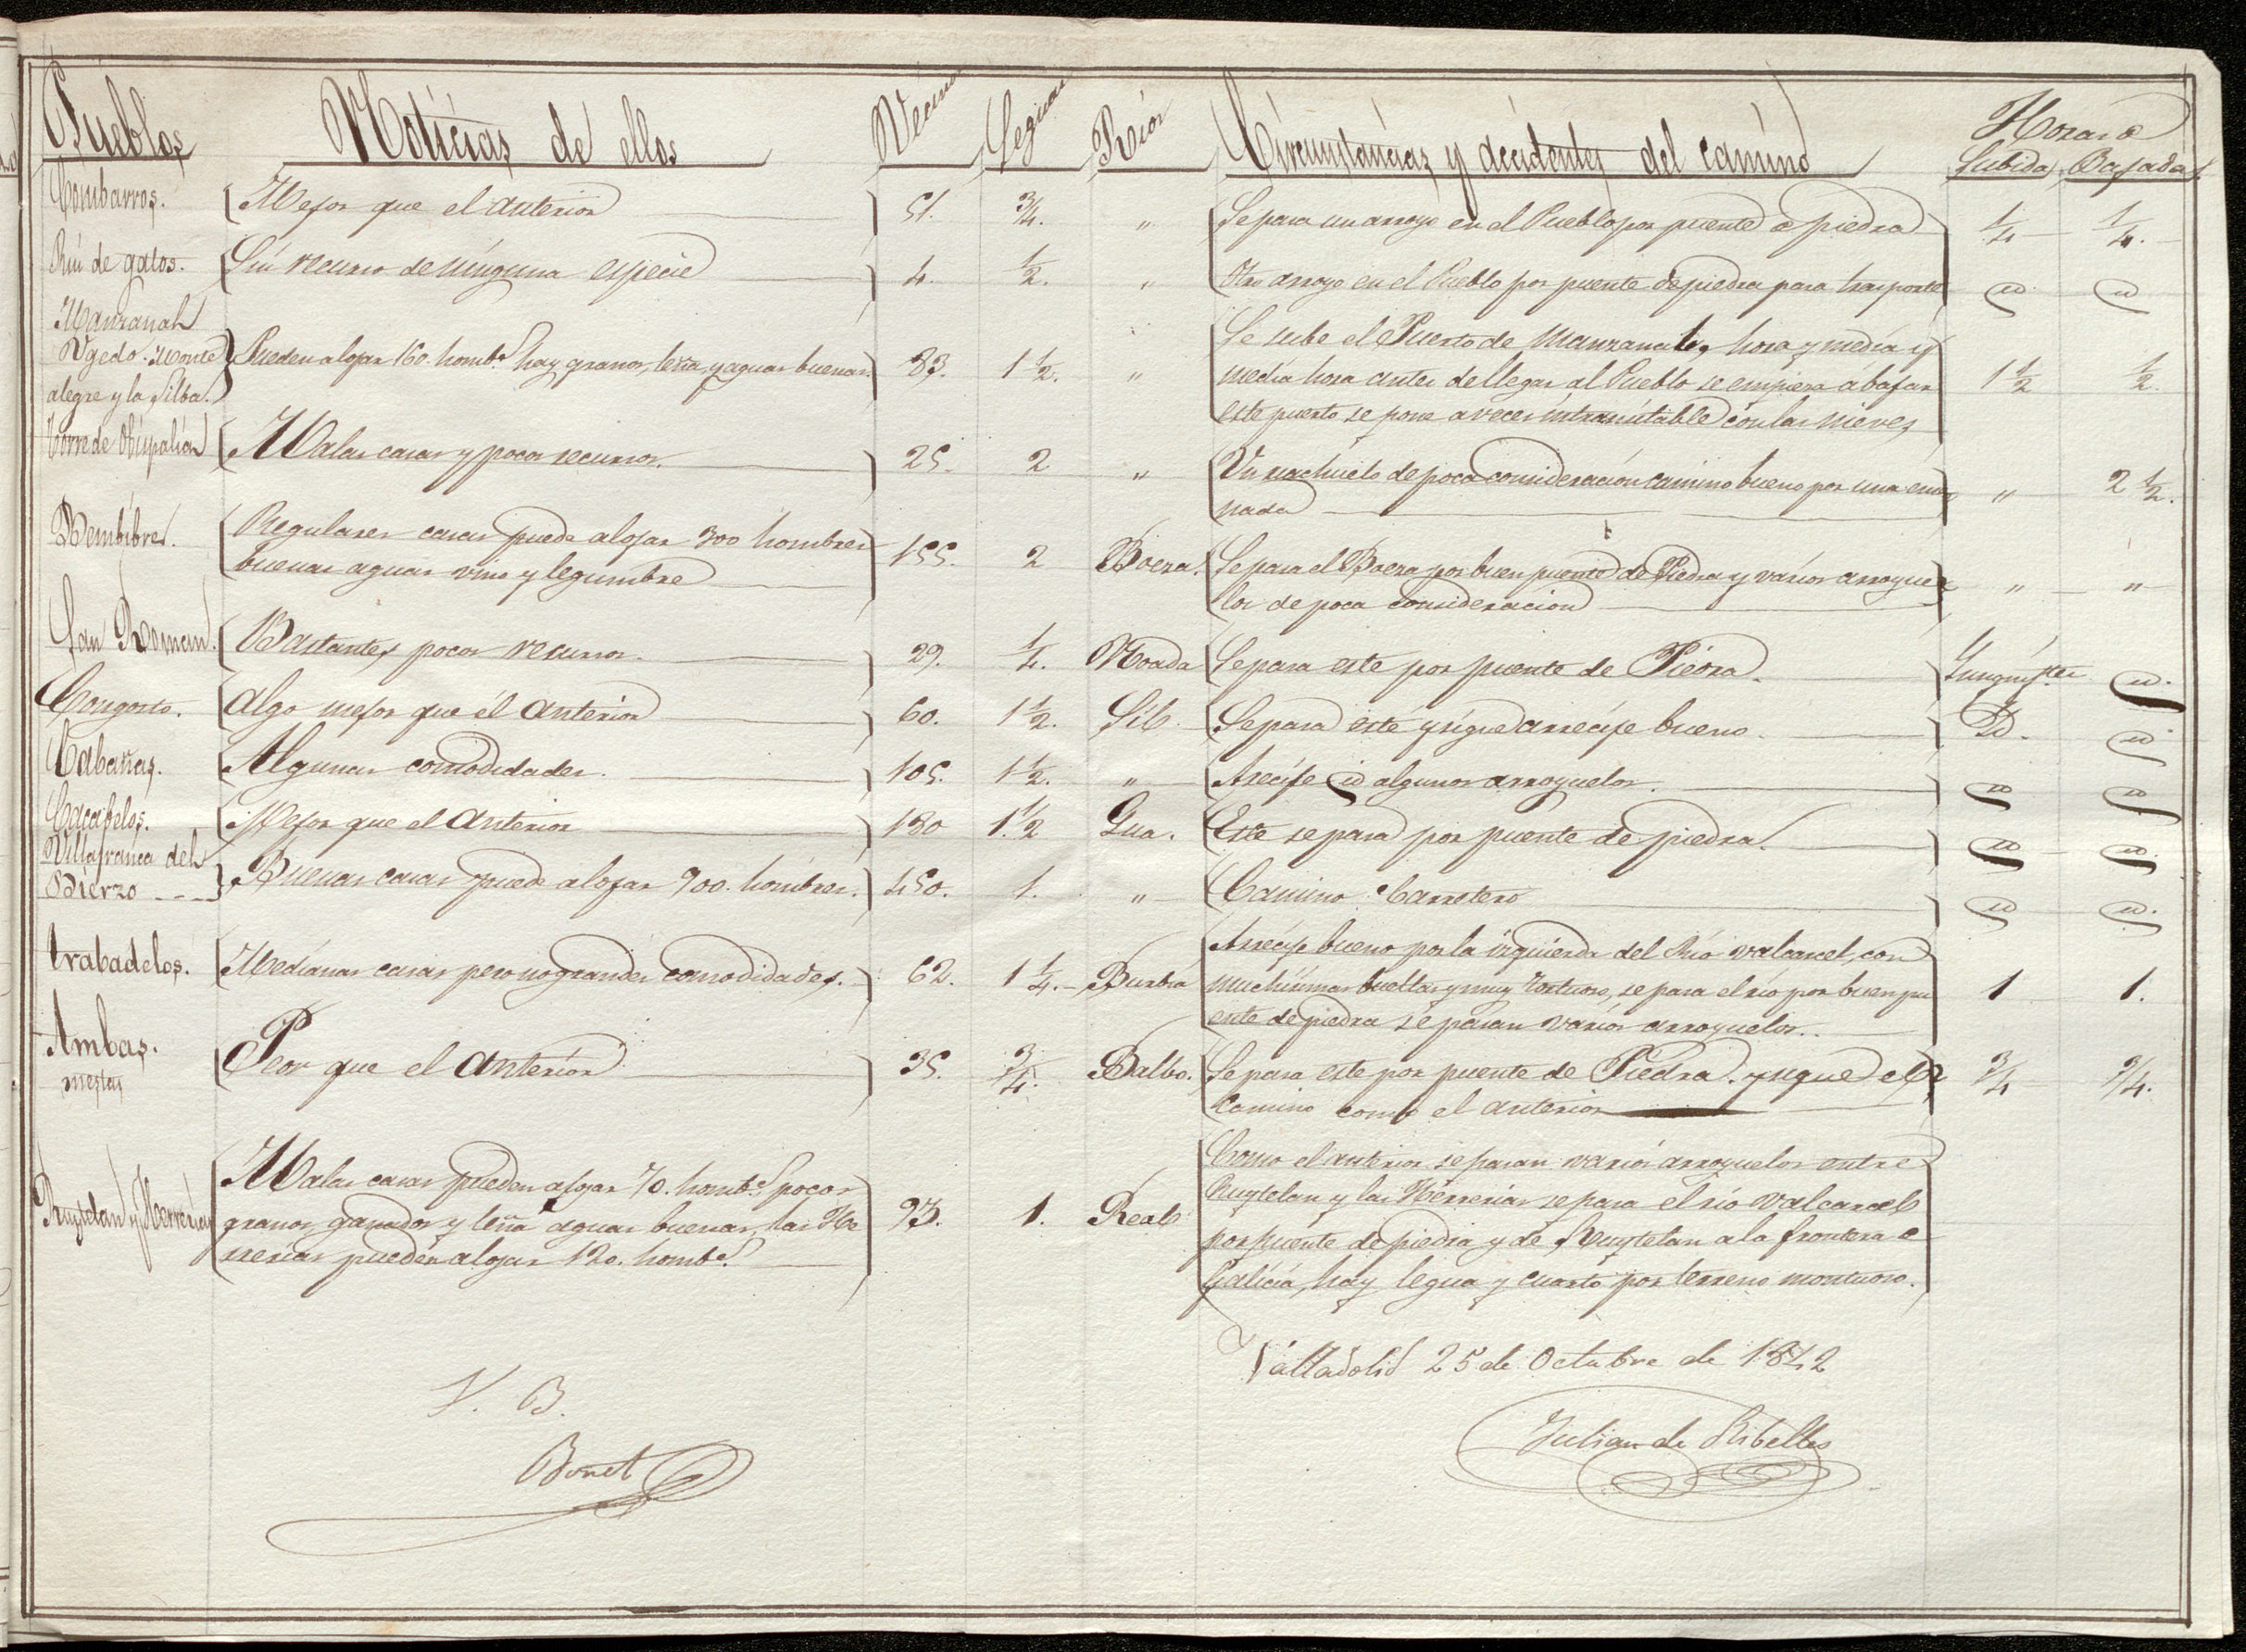 Pueblos Noticias de ellos Vecinos Leguas Rios Circunstancias y accidentes del camino Horas de
Subida Bajada
Combarros. Mejor que el anterior 51. 3/4. " Se pasa un arroyo en el Pueblo por puente de piedra 1/4 1/4.
Rin de gatos. Sin recurso de ninguna especie 4. 1/2. " Otro arroyo en el Pueblo por puente de piedra para trasporte id id
Manzanal
Ugedo. Monte
alegre y la Silba. Pueden alojar 160. homb.s hay granos, leña, y aguas buenas. 83. 1 1/2. " Se sube el Puerto de Manzanal, hora y media y
media hora antes de llegar al Pueblo se empieza á bajar 1 1/2 1/2.
este puerto se pone a veces intransitable con las nieves
Torre de Rispalion Malas casas y pocos recursos. 25. 2 " Un riachuelo de poca consideración camino bueno por una ca " 2 1/2.
nada
Bembibre. Regulares casas puede alojar 300 hombres
buenas aguas vino y legumbre 155. 2 Boeza. Se pasa el Boeza por buen puente de Piedra y varios arroyue " "
los de poca consideracion
San Roman. Bastantes pocos recursos. 29. 1/4. Noada Se pasa este por puente de Piedra. id.
Congosto. Algo mejor que el anterior 60. 1 1/2. Sil. Se pasa este y sigue arrecife bueno. Id. id.
Cabañas. Algunas comodidades. 105. 1 1/2. " Arecife id algunos arroyuelos. id id
Cacabelos. Mejor que el anterior 180 1. 1/2 Cua. Este se pasa por puente de piedra. id id.
Villafranca del
Bierzo Buenas casas puede alojar 900. hombres. 450. 1. " Camino Carretero id id.
trabadelos. Medianas casas pero no grandes comodidades. 62. 1 1/4. Burbia Arrecife bueno por la izquierda del Rio valcarcel, con
muchisimas bueltas y muy tortuoso, se pasa el rio por buen pu 1 1.
ente de piedra se pasan varios arroyuelos.
Ambas.
mestas Peor que el anterior 35. 3/4. Balbo. Se pasa este por puente de Piedra. y sigue el 3/4 3/4.
camino como el anterior
Ruytelan y Herrerías Malas casas pueden alojar 70. homb.s pocos
granos, ganados y leña aguas buenas, las He
rrerias pueden alojar 120. homb.s 93. 1. Real Como el anterior se pasan varios arroyuelos entre
Ruytelan y las Herrerias se pasa el rio valcarcel
por puente de piedra y de Ruytelan a la frontera de
Galicia, hay legua y cuarto por terreno montuoso.
Valladolid 25 de Octubre de 1842
V. B.
Julian de Ribelles
Bonet